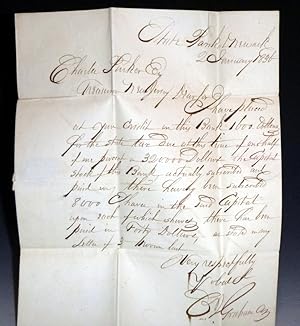 State Bank at Newark
2 January 1836
Charles Parker Esq
Treasurer New Jersey Dear Sir
I have placed
at your Credit in this Bank 1600 Dollars
for the state tax due at this time of one half
of one per cent on 320000 Dollars the Capital
Stock of this Bank actually subscribed and
paid in, there having been subscribed
8000 Shares in the said Capital
upon each of which shares there has been
paid in Forty Dollars, as stated in my
Letter of
Very respectfully
Yr obed St
Graham Cas